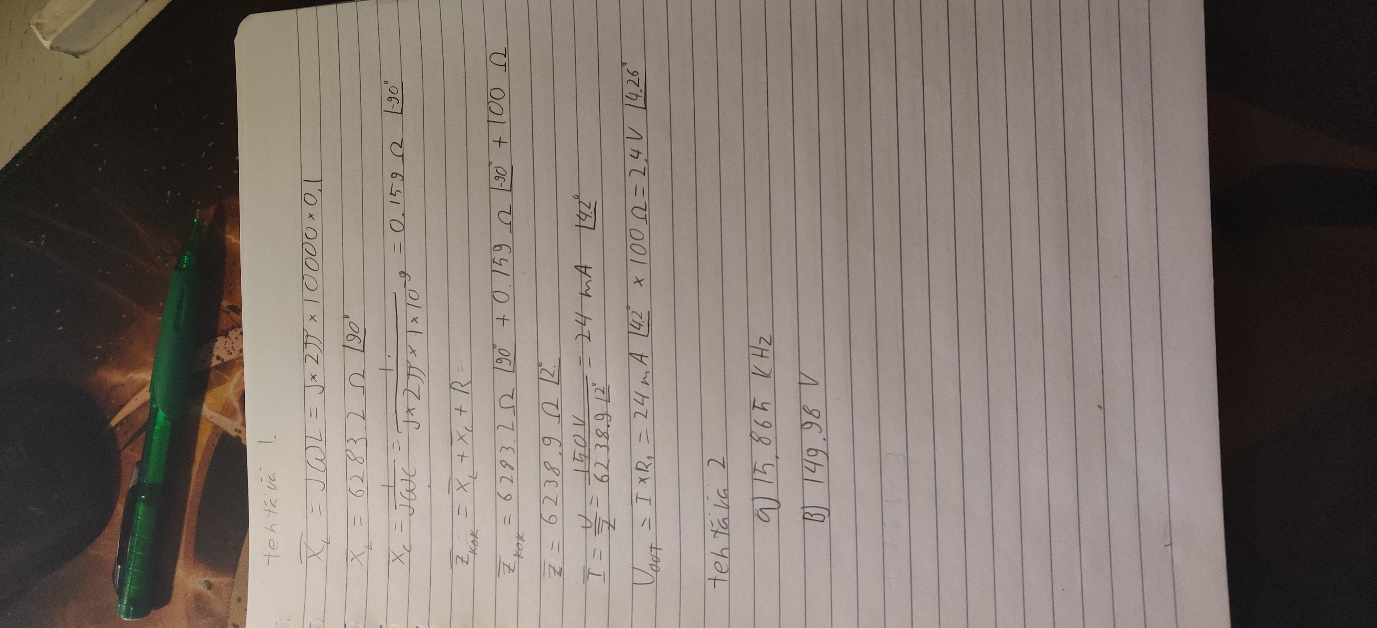 tehtävä 1
X̅_L = JωL = J×2π×10000×0.1
X̅_L = 6283.2 Ω |90°
X_C = 1/JωC = 1/J×2π×1×10^-9 = 0.159 Ω |-90°
Z̅_KOK = X̅_L + X̅_C + R =
Z̅_KOK = 6283.2 Ω |90° + 0.159 Ω |-90° + 100 Ω
Z̅ = 6238.9 Ω |2°
I̅ = U/Z̅ = 150V/6238.9 |2° = 24 mA |4.2°
U_OUT = I×R_1 = 24mA |4.2° × 100Ω = 2.4V |4.26°
tehtävä 2
a) 15,865 KHz
B) 149.98 V